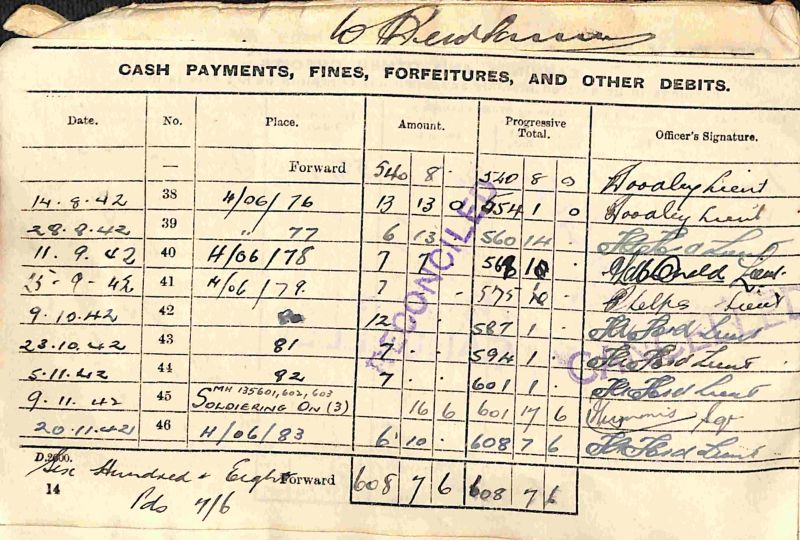 CASH PAYMENTS, FINES, FORFEITURES, AND OTHER DEBITS.
Date. No. Place. Amount. Progressive Total. Officer's Signature.
— Forward 540 8 - 540 8 0 Hoodley Lieut
14.8.42 38 H/06/76 13 13 0 554 1 0 Hoodley Lieut
28.8.42 39 " 77 6 13 - 560 14 - Lieut
11.9.42 40 H/06/78 7 7 568 1 - Lieut
25-9-42 41 H/06/79. 7 - - 575 1 - Phelps Lieut
9.10.42 42 12 - 587 1 - H Ford Lieut
23.10.42 43 81 7 - - 594 1 - H Ford Lieut
5.11.42 44 82 7 - - 601 1 - H Ford Lieut
9.11.42 45 MH 135601, 602, 603
SOLDIERING ON (3) 16 6 601 17 6
20.11.42 46 H/06/83 6 10 - 608 7 6 H Ford Lieut
D.2600.
Six Hundred & Eight Forward 608 7 6 608 7 6
14 Pds 7/6
RECONCILED
CANCELLED